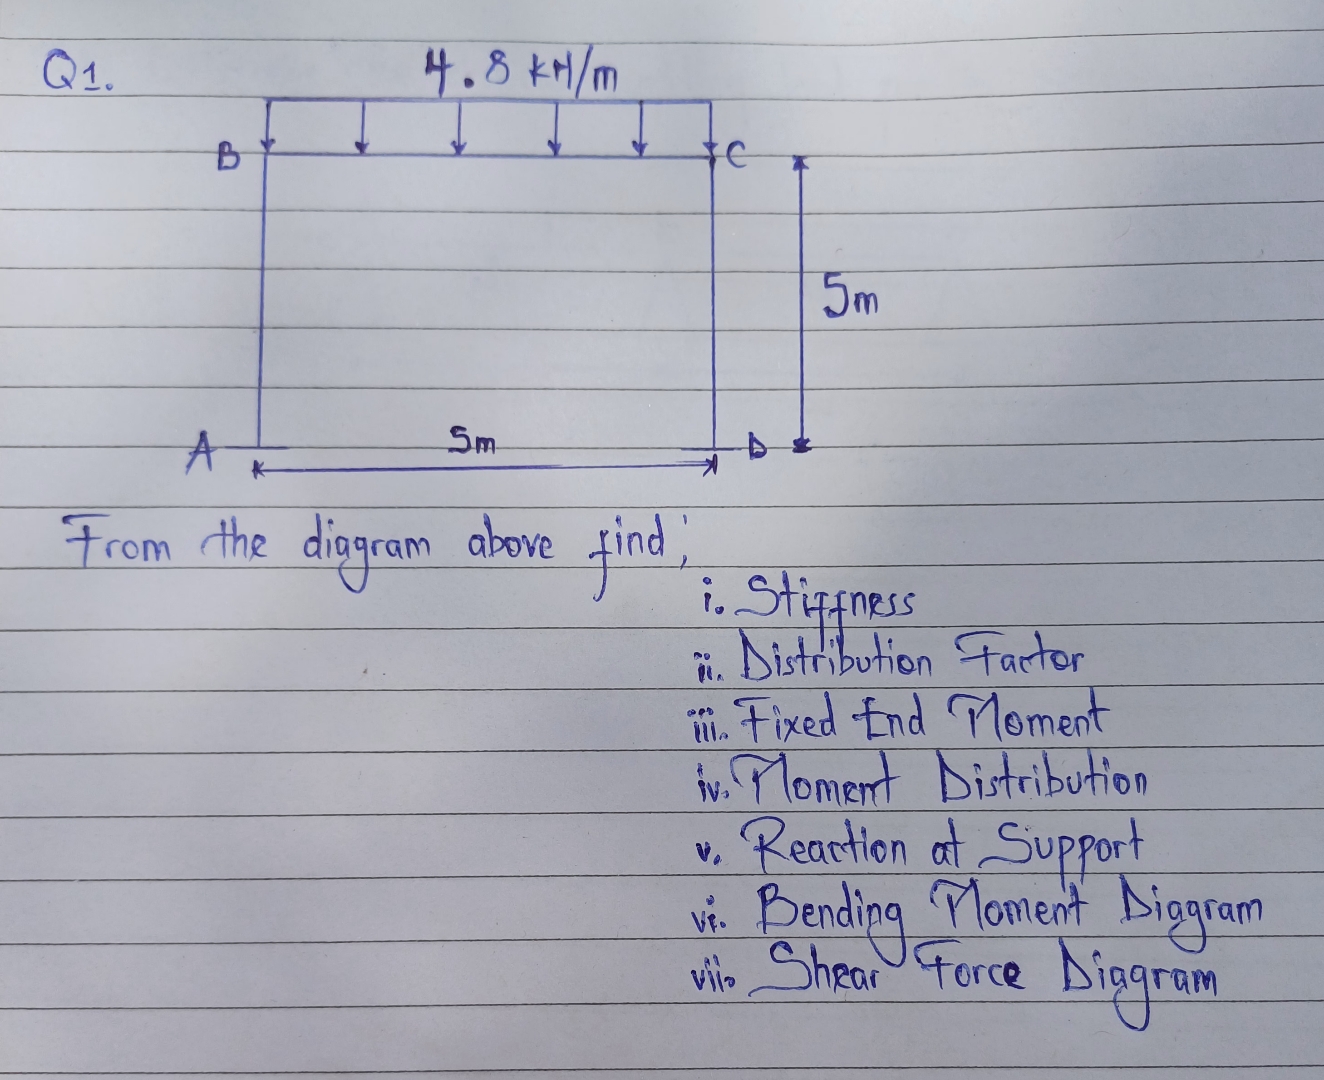 Q1.
4.8 kN/m
B
C
5m
A
5m
D
From the diagram above find;
i. Stiffness
ii. Distribution Factor
iii. Fixed End Moment
iv. Moment Distribution
v. Reaction at Support
vi. Bending Moment Diagram
vii. Shear Force Diagram